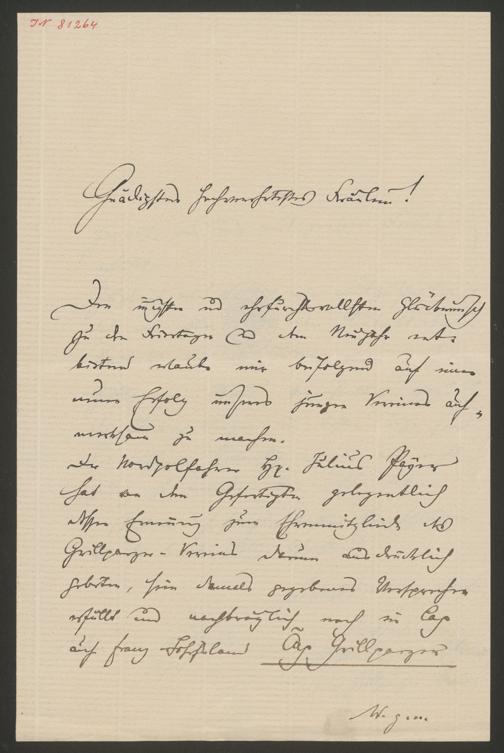 JN 81264
Gnädigstes hochverehrtestes Fräulein!
Den innigsten und ehrfurchtsvollsten Glückwunsch
zu den Feiertagen und dem Neujahr ent-
bietend erlaube mir beifolgend auf einen
neuen Erfolg unseres jungen Vereines auf-
merksam zu machen.
Der Nordpolfahrer Hr. Julius Payer
hat an den Gefertigten gelegentlich
dessen Ernennung zum Ehrenmitgliede des
Grillparzer-Vereins darum ausdrücklich
gebeten, sein damals gegebenes Versprechen
erfüllt und nachträglich noch ein Cap
auf Franz Josefsland Cap Grillparzer